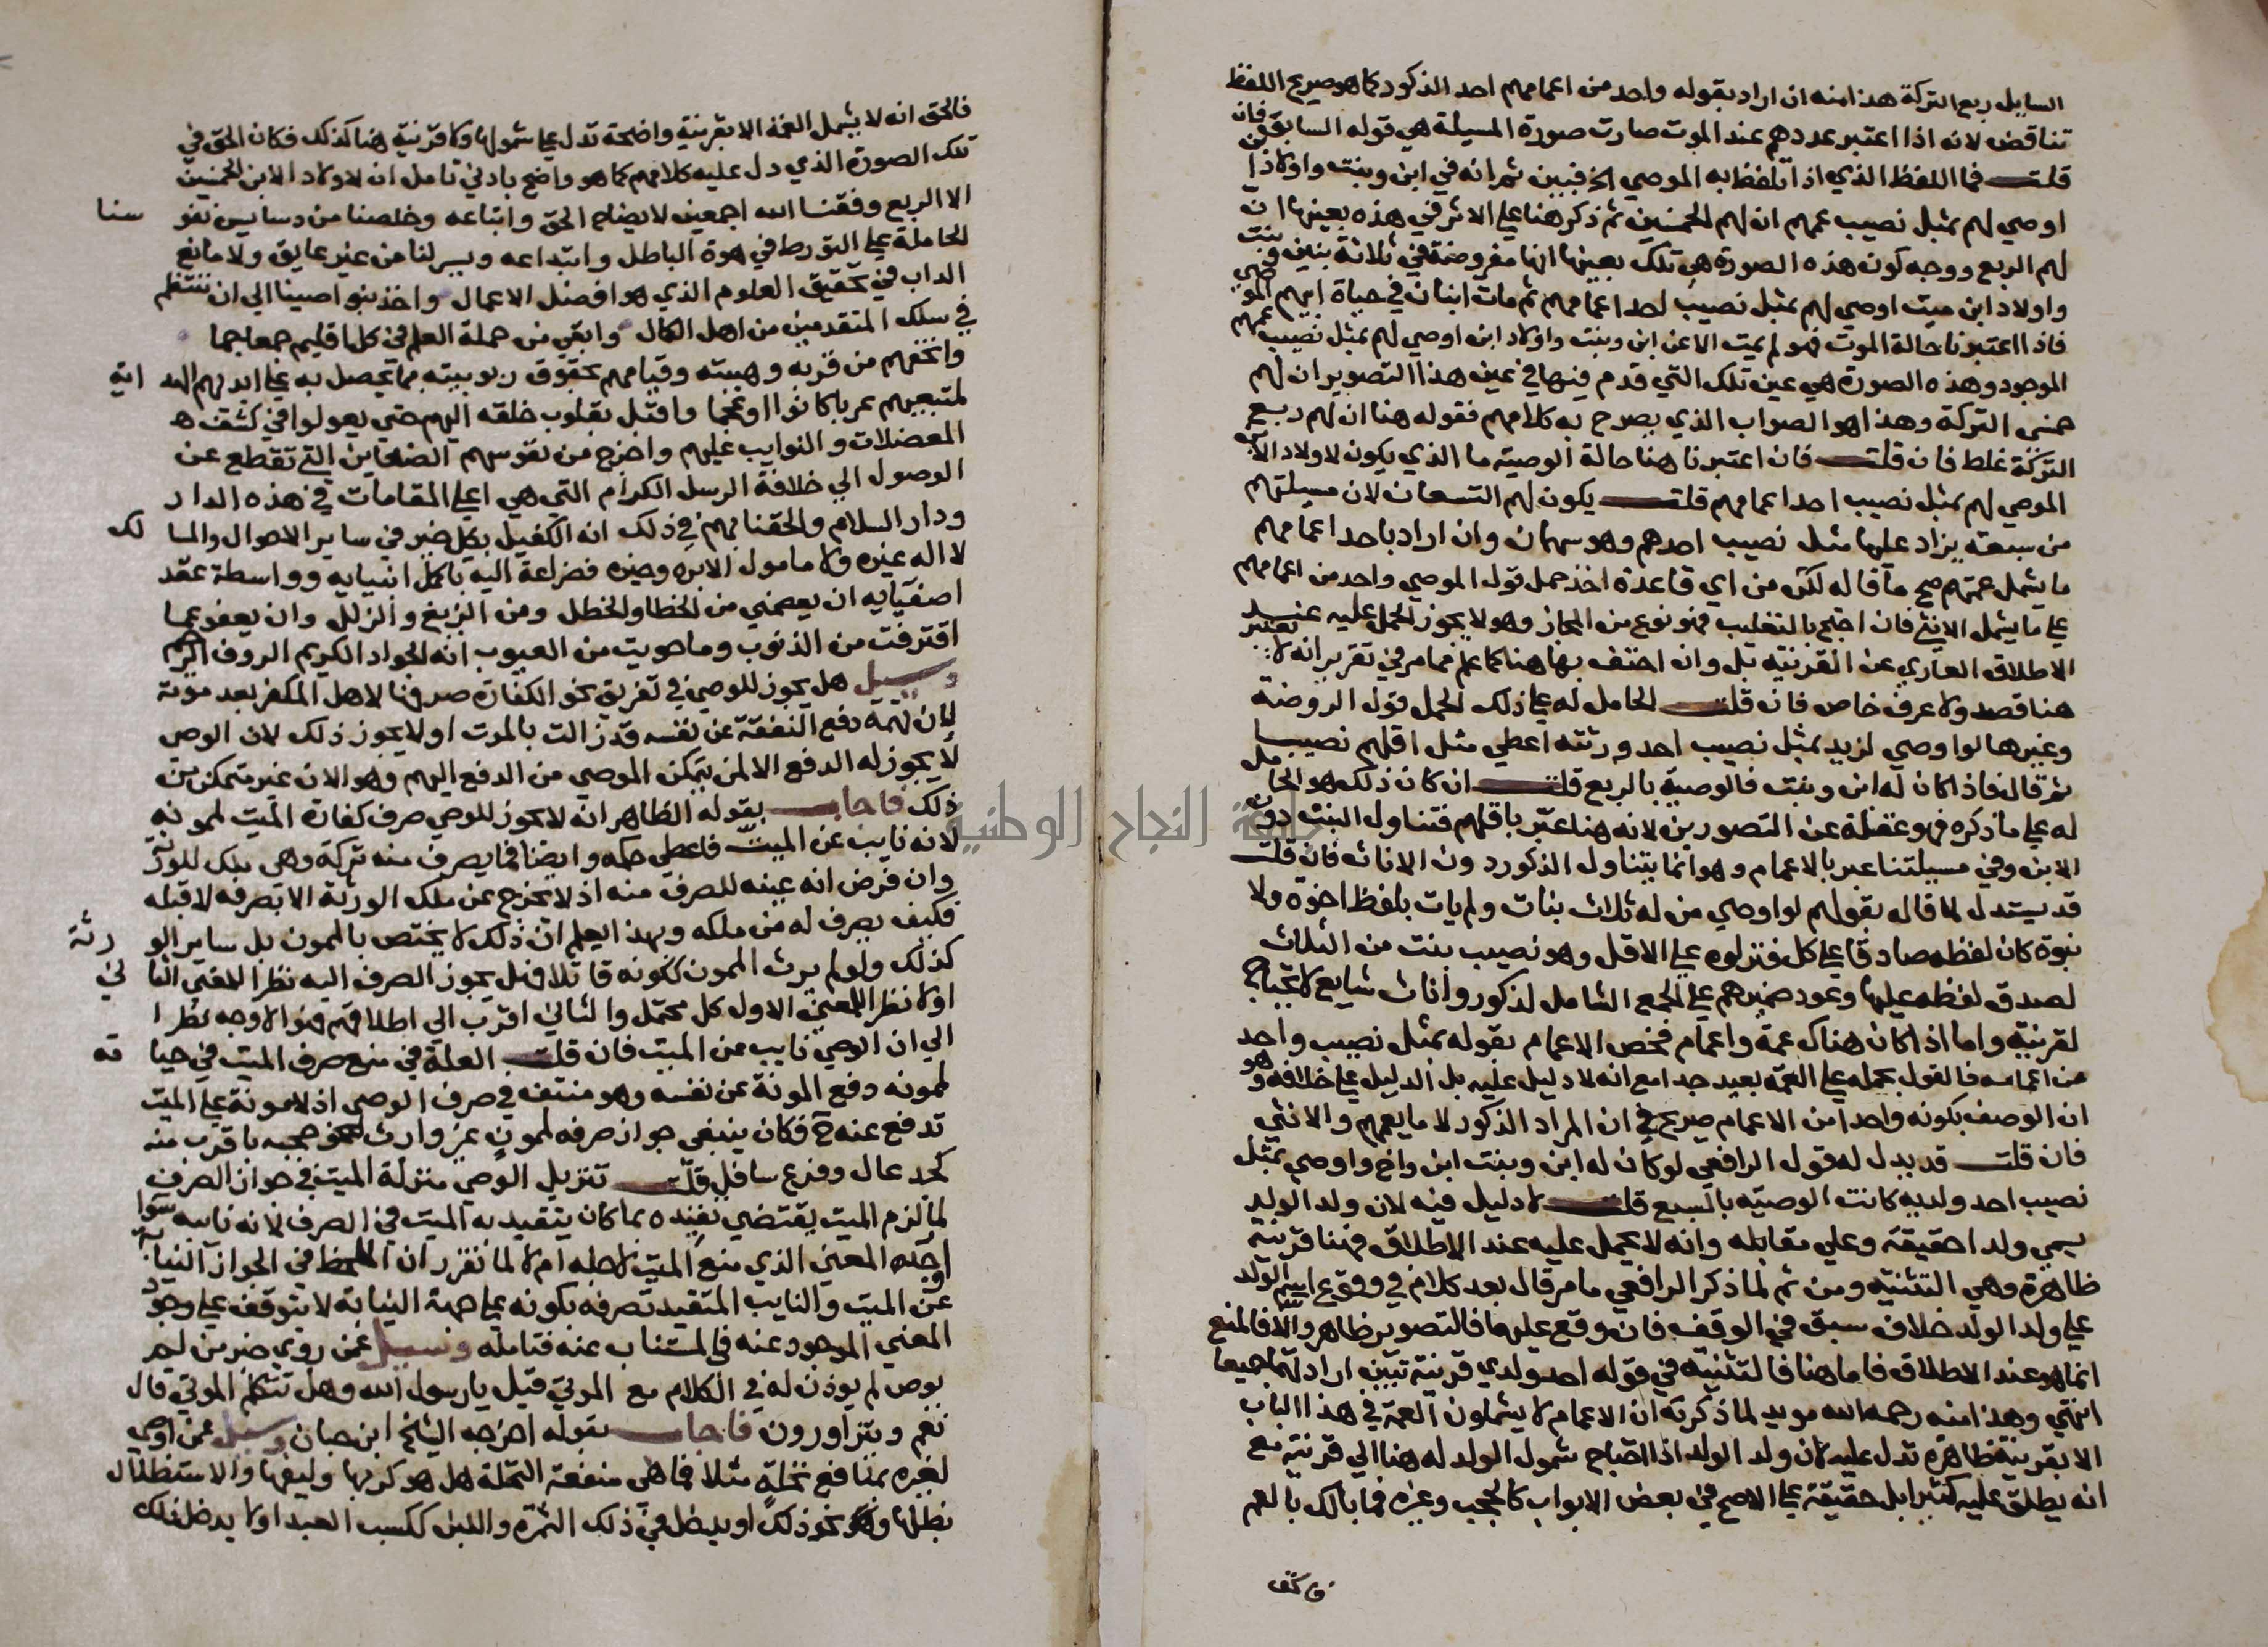 السايل ربع التركة هذا منه ان اراد بقوله واحد من اعمامهم احد الذكور كما هو صريح اللفظ
تناقض لانه اذا اعتبر عددهم عند الموت صارت صورة المسيلة هي قوله السابق فان
قلت فما اللفظ الذي اذا تلفظ به الموصي ثم انه في ابن وبنت واولاد ابن
اوصي لهم بمثل نصيب عمهم ان لهم الخمسين ثم ذكر هنا علي الاثر في هذه بعينها ان
لهم الربع ووجه كون هذه الصورة هي تلك بعينها انها مفروضة في ثلاثة بنين وبنت
واولاد ابن ميت اوصي لهم بمثل نصيب احد اعمامهم ثم مات ابنان في حياة ابيهم الموصي
فاذا اعتبرنا حالة الموت فهو لم يمت الا عن ابن وبنت واولاد ابن اوصي لهم بمثل نصيب عمهم
الموجود وهذه الصورة هي عين تلك التي قدم فيها في عين هذا التصوير ان لهم
خمسي التركة وهذا هو الصواب الذي يصرح به كلامهم فقوله هنا ان لهم ربع
التركة غلط فان قلت فان اعتبرنا هنا حالة الوصية ما الذي يكون لاولاد الابن
الموصي لهم بمثل نصيب احد اعمامهم قلت يكون لهم التسعان لان مسيلتهم
من سبعة يزاد عليها مثل نصيب احدهم وهو سهمان وان اراد باحد اعمامهم
ما يشمل عمتهم صح ما قاله لكن من اي قاعدة اخذ حمل قول الموصي واحد من اعمامهم
علي ما يشمل الانثي فان احتج بالتغليب فهو نوع من المجاز وهو لا يجوز الحمل عليه عند
الاطلاق العاري عن القرينة بل وان احتف بها هنا كما علم مما مر في تقرير انه لا يعتبر
هنا قصد ولا عرف خاص فان قلت الحامل له علي ذلك الحمل قول الروضة
وغيرها لو اوصي لزيد بمثل نصيب احد ورثته اعطي مثل اقلهم نصيبا
ثم قال فاذا كان له ابن وبنت فالوصية بالربع قلت ان كان ذلك هو الحامل
له علي ما ذكره فهو غفلة عن التصورين لانه هنا عبر باقلهم فتناول البنت دون
الابن وفي مسيلتنا عبر بالاعمام وهو انما يتناول الذكور دون الاناث فان قلت
قد يستدل لما قاله بقولهم لو اوصي من له ثلاث بنات ولم يات بلفظ اخوة ولا
بنوة كان لفظه صادقا علي كل فنزلوه علي الاقل وهو نصيب بنت من الثلاث
لصدق لفظه عليها وعود ضميرهم علي الجمع الشامل لذكور واناث شايع لا يحتاج
لقرينة واما اذا كان هناك عمة واعمام فخص الاعمام بقوله بمثل نصيب واحد
من اعمامه فالقول بحمله علي العمة بعيد جدا مع انه لا دليل عليه بل الدليل علي خلافه وهو
ان الوصف بكونه واحدا من الاعمام صريح في ان المراد الذكور لا ما يعمهم والانثي
فان قلت قد يدل له قول الرافعي لو كان له ابن وبنت ابن واخ واوصي بمثل
نصيب احد ولديه كانت الوصية بالسبع قلت لا دليل فيه لان ولد الولد
يسمي ولدا حقيقة وعلي مقابله وانه لا يحمل عليه عند الاطلاق فهنا قرينة
ظاهرة وهي التثنية ومن ثم لما ذكر الرافعي ما مر قال بعد كلام في وقوع اسم الولد
علي ولد الولد خلاف سبق في الوقف فان وقع عليهما فالتصوير ظاهر والا فالمنع
انما هو عند الاطلاق فاما هنا فالتثنية في قوله احد ولدي قرينة تبين ارادتهما جميعا
انتهي وهذا منه رحمه الله مويد لما ذكرته ان الاعمام لا يشملون العمة في هذا الباب
الا بقرينة ظاهرة تدل عليه لان ولد الولد اذا احتاج شمول الولد له هنا الي قرينة مع
انه يطلق عليه كثيرا بل حقيقة علي الاصح في بعض الابواب كالحجب وغيره فما بالك بالعم
فالحق انه لا يشمل العمة الا بقرينة واضحة تدل علي شمولها ولا قرينة هنا كذلك فكان الحق في
تلك الصورة الذي دل عليه كلامهم كما هو واضح بادني تامل ان لاولاد الابن الخمسين
الا الربع وفقنا الله اجمعين لايضاح الحق واتباعه وخلصنا من دسايس نفوسنا
الحاملة علي التورط في هوة الباطل وابتداعه ويسر لنا من غير عايق ولا مانع
الداب في تحقيق العلوم الذي هو افضل الاعمال واخذ بنواصينا الي ان ننتظم
في سلك المتقدمين من اهل الكمال وابقي من حملة العلم في كل اقليم جمعا جما
واتحفهم من قربه وهيبته وقيامهم بحقوق ربوبيته مما تحصل به علي ايديهم الهداية
لمتبعيهم عربا كانوا او عجما واقبل بقلوب خلقه اليهم حتي يعولوا في كشف
المعضلات والنوايب عليهم واخرج من نفوسهم الضغاين التي تقطع عن
الوصول الي خلافة الرسل الكرام التي هي اعلي المقامات في هذه الدار
ودار السلام والحقنا بهم في ذلك انه الكفيل بكل خير في ساير الاحوال والمسالك
لا اله غيره ولا مامول الا بره وخيره فضراعة اليه باكمل انبيايه وواسطة عقد
اصفيايه ان يعصمني من الخطا والخطل ومن الزيغ والزلل وان يعفو عما
اقترفت من الذنوب وما حويت من العيوب انه الجواد الكريم الروف الرحيم
وسييل هل يجوز للوصي في تفريق نحو الكفارة صرفها لاهل المكفر بعد موته
لان تهمة دفع النفقة عن نفسه قد زالت بالموت او لا يجوز ذلك لان الوصي
لا يجوز له الدفع الا لمن يتمكن الموصي من الدفع اليهم وهو الان غير متمكن من
ذلك فاجاب بقوله الظاهر انه لا يجوز للوصي صرف كفارة الميت لمونه
لانه نايب عن الميت فاعطي حكمه وايضا فما يصرف منه تركة وهي ملك للورثة
وان فرض انه عينه للصرف منه اذ لا يخرج عن ملك الورثة الا بتصرفه لا قبله
فكيف يصرف له من ملكه وبهذا يعلم ان ذلك لا يختص بالممون بل ساير الورثة
كذلك ولو لم يرث الممون لكونه قاتلا فهل يجوز الصرف اليه نظرا للمعني الثاني
اولا نظرا للمعني الاول كل محتمل والثاني اقرب الي اطلاقهم فهو الاوجه نظرا
الي ان الوصي نايب عن الميت فان قلت العلة في منع صرف الميت في حياته
لممونه دفع المونة عن نفسه وهو منتف في صرف الوصي اذ لا مونة علي الميت
تدفع عنه ح فكان ينبغي جواز صرفه لممون غير وارث لنحو حجبه باقرب منه
كجد عال وفرع سافل قلت تنزيل الوصي منزلة الميت في جواز الصرف
لما لزم الميت يقتضي تقييده بما كان يتقيد به الميت في الصرف لانه نايبه سوا
اوجد المعني الذي منع الميت لاجله ام لا لما تقرر ان الملحظ في الجواز النيابة
عن الميت والنايب المتقيد تصرفه بكونه علي جهة النيابة لا يتوقف علي وجود
المعني الموجود عنه في المستناب عنه فتامله وسييل عمن روي خبر من لم
يوص لم يوذن له في الكلام مع الموتي قيل يا رسول الله وهل تتكلم الموتي قال
نعم ويتزاورون فاجاب بقوله اخرجه الشيخ ابن حبان وسيل عمن اوصي
لغيره بمنافع نخلة مثلا فما هي منفعة النخلة هل هو كربها وليفها والاستظلال
بظلها ونحو ذلك او يدخل في ذلك الثمرة واللبن ككسب العبد او لا يدخل ذلك
جامعة النجاح الوطنية